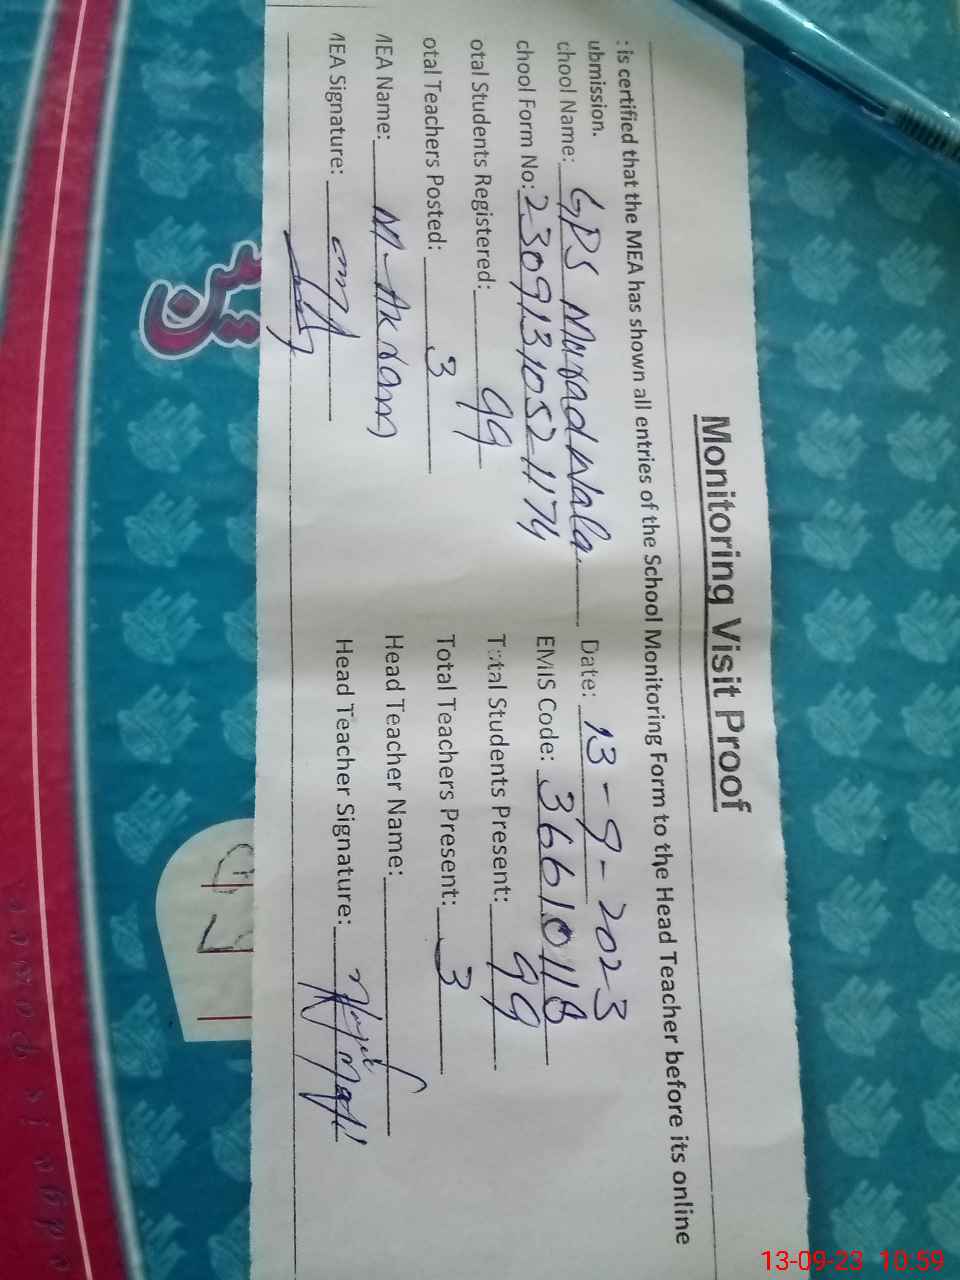 Monitoring Visit Proof
: is certified that the MEA has shown all entries of the School Monitoring Form to the Head Teacher before its online
ubmission.
chool Name: GPS Murad Wala Date: 13-9-2023
chool Form No: 23091310521174 EMIS Code: 36610118
otal Students Registered: 99 Total Students Present: 99
otal Teachers Posted: 3 Total Teachers Present: 3
MEA Name: M-Akram Head Teacher Name:
MEA Signature: Head Teacher Signature:
13-09-23 10:59